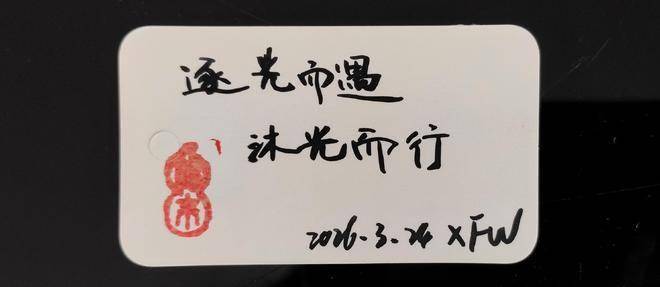 逐光而遇
沐光而行
2026.3.24 XFW